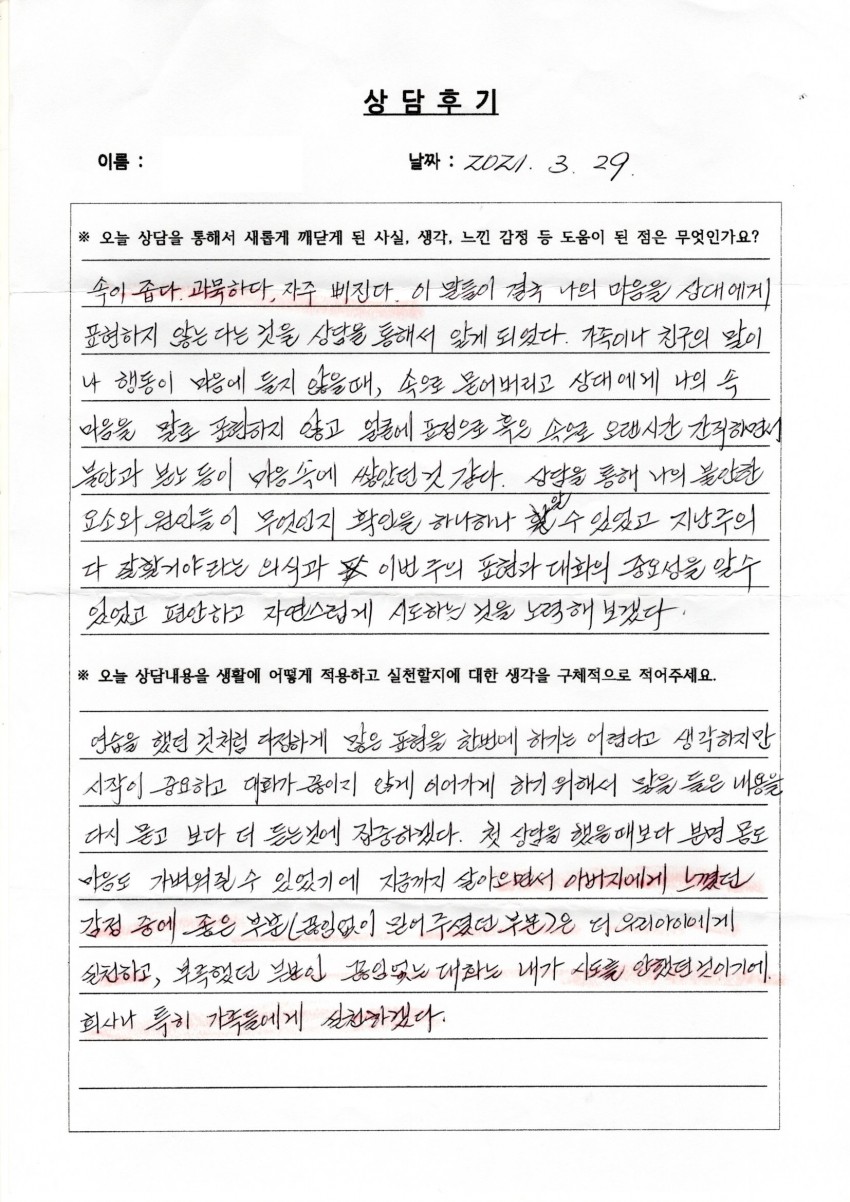 상 담 후 기
이름 :
날짜 : 2021. 3. 29.
※ 오늘 상담을 통해서 새롭게 깨닫게 된 사실, 생각, 느낀 감정 등 도움이 된 점은 무엇인가요?
속이 좁다. 과묵하다, 자주 삐진다. 이 말들이 결국 나의 마음을 상대에게
표현하지 않는다는 것을 상담을 통해서 알게 되었다. 가족이나 친구의 말이
나 행동이 마음에 들지 않을때, 속으로 묻어버리고 상대에게 나의 속
마음을 말로 표현하지 않고 얼굴에 표정으로 혹은 속으로 오랜시간 간직하면서
불안과 분노 등이 마음속에 쌓았던것 같다. 상담을 통해 나의 불안한
요소와 원인들이 무엇인지 확인을 하나하나 할 수 있었고 지난주의
다 잘할거야 라는 의식과 이번 주의 표현과 대화의 중요성을 알수
있었고 편안하고 자연스럽게 시도하는 것을 노력해 보겠다.
※ 오늘 상담내용을 생활에 어떻게 적용하고 실천할지에 대한 생각을 구체적으로 적어주세요.
연습을 했던 것처럼 다정하게 많은 표현을 한번에 하기는 어렵다고 생각하지만
시작이 중요하고 대화가 끊이지 않게 이어가게 하기 위해서 말을 들은 내용을
다시 묻고 보다 더 듣는것에 집중하겠다. 첫 상담을 했을때보다 분명 몸도
마음도 가벼워질 수 있었기에 지금까지 살아오면서 아버지에게 느꼈던
감정 중에 좋은 부분(끊임없이 믿어 주셨던 부분)은 더 우리아이에게
실천하고, 부족했던 부분인 끊임없는 대화는 내가 시도를 안했던것이기에
회사나 특히 가족들에게 실천하겠다.